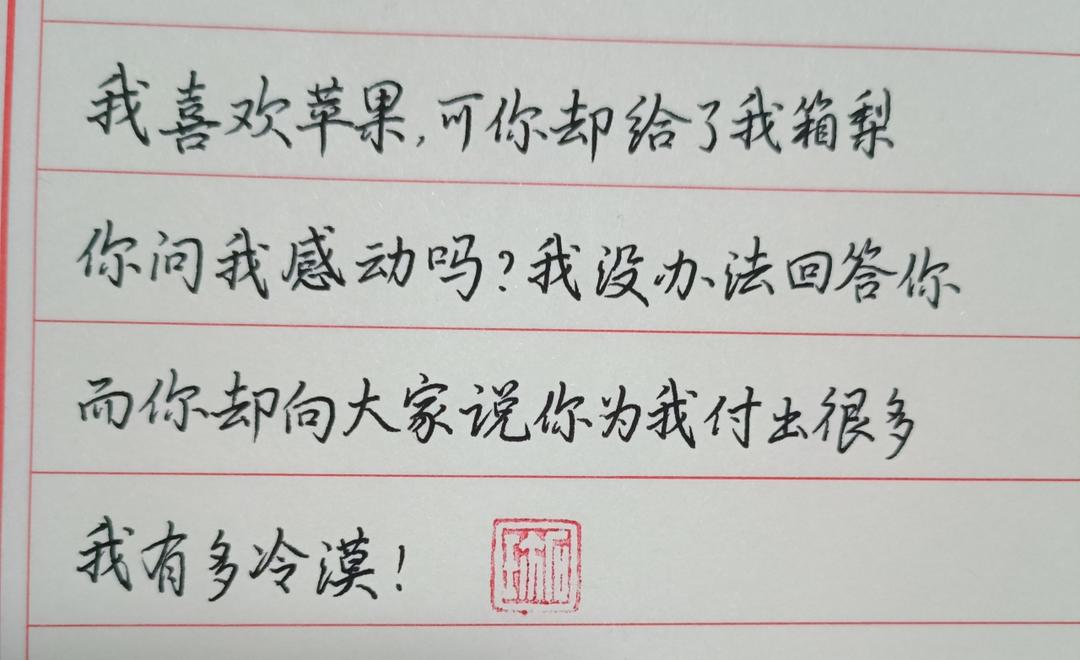 我喜欢苹果,可你却给了我箱梨
你问我感动吗?我没办法回答你
而你却向大家说你为我付出很多
我有多冷漠!